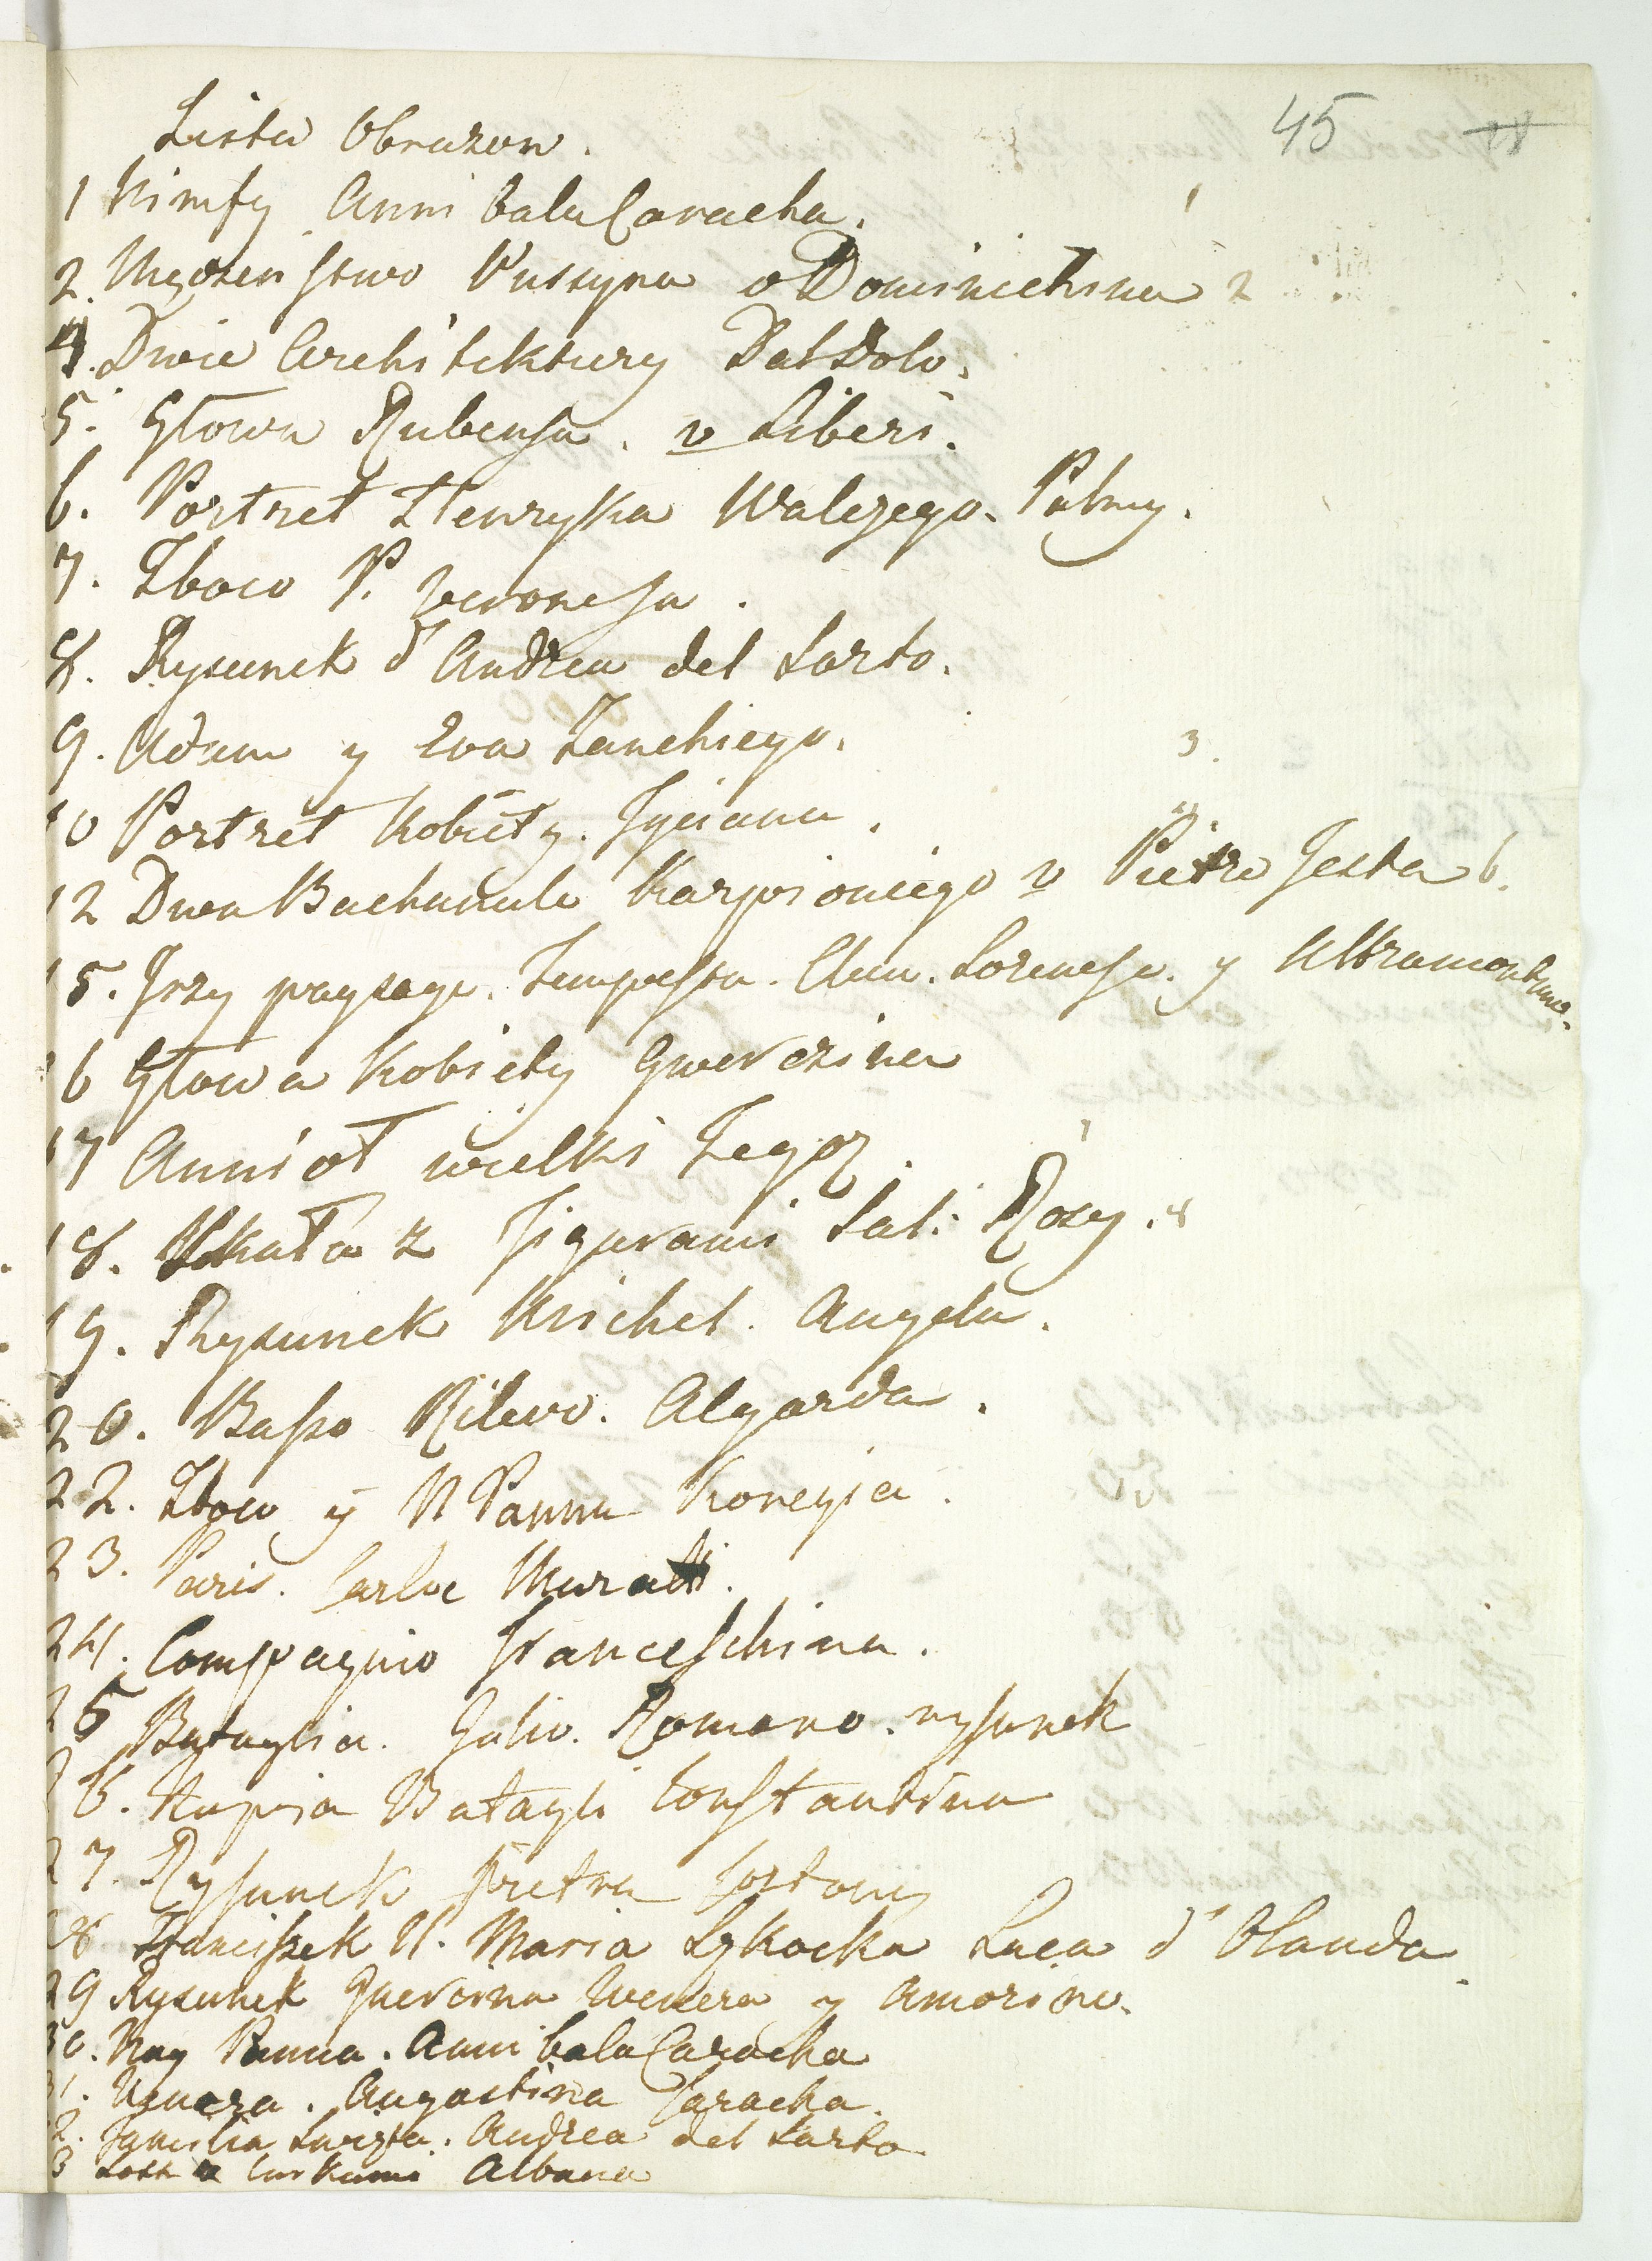 45
Lista Obrazow.
1 Nimfy Annibala Caracha. 1
2. Męczeństwo Pussyna v Dominichina 2
4. Dwie Architektury Dal Dolo.
5. Głowa Rubensa. v Liberi.
6. Portret Henryka Walezego. Palmy.
7. Zbawi P. Veronesa.
8. Rysunek d'Andrea del Sarto.
9. Adam y Ewa Zanchiego. 3.
10 Portret Kobiety. Tyciana.
12 Dwa Bachanale Karpioniego v Pietro Testa 6.
15. Trzy paysage. Tempesta. Clau. Lorenese. y Ultramontano.
16 Głowa Kobiety Gwerczina
17 Annioł wielki Tegoz
18. Skała z Figurami Sal: Rosy. 8
19. Rysunek Michel. Angela.
20. Basso Rilewo. Algarda.
22. Zbaw y N Panna Koregia.
23. Paris. Carlo Muratti.
24. Compagnio Franceschina.
25 Bataylia. Julio. Romano. rysunek
26. Kopia Batayli Constantina
27. Rysunek Pietra Cortony
28 Franciszek N. Maria Sykocka Luca d'Olanda.
29 Rysunek Guercina Wenera y Amorino.
30. Nay Panna. Annibala Caracha
31. Augustina Caracha.
2. Familia Swięta. Andrea del Sarto
3 Loth z Curkami Albana